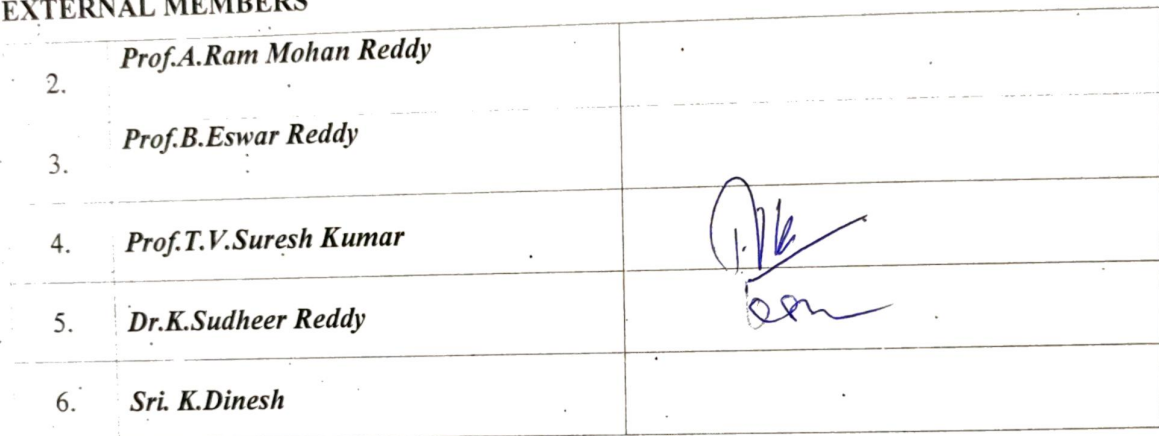 EXTERNAL MEMBERS
2. Prof.A.Ram Mohan Reddy
3. Prof.B.Eswar Reddy
4. Prof.T.V.Suresh Kumar
5. Dr.K.Sudheer Reddy
6. Sri. K.Dinesh